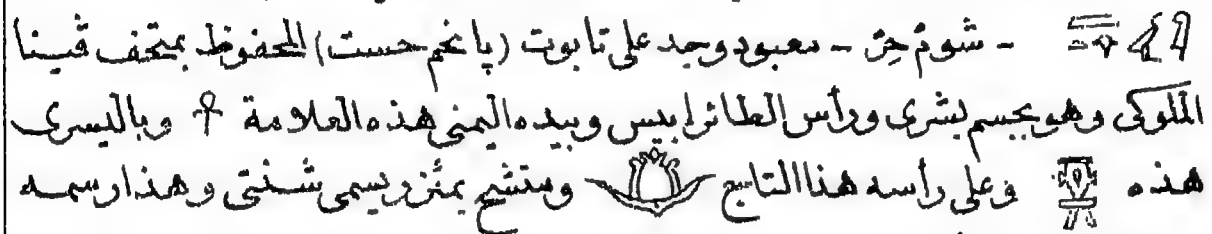 - شوم حن - معبود وجد على تابوت (پانخم حست) المحفوظ بمتحف ڤينا
الملوكى وهو بجسم بشرى ورأس الطائر ابيس وبيده اليمنى هذه العلامة ☥ وباليسرى
هذه وعلى رأسه هذا التاج ومتشح بمئزر يسمى شنتى وهذا رسمه